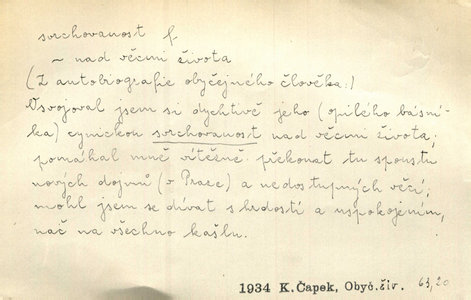 svrchovanost f
~ nad věcmi života
(Z autobiografie obyčejného člověka:)
Osvojoval jsem si dychtivě jeho (opilého básní-
ka) cynickou svrchovanost nad věcmi života;
pomáhal mně vítězně překonat tu spoustu
nových dojmů (v Praze) a nedostupných věcí;
mohl jsem se dívat s hrdostí a uspokojením,
nač na všechno kašlu.
1934 K. Čapek, Obyč.živ. 63,20